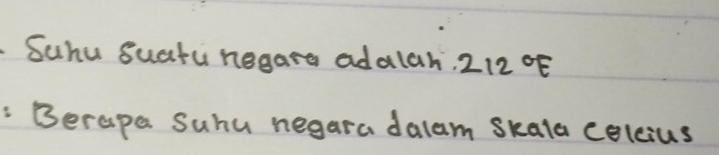 - Suhu suatu negara adalah. 212 °F
: Berapa suhu negara dalam skala celcius